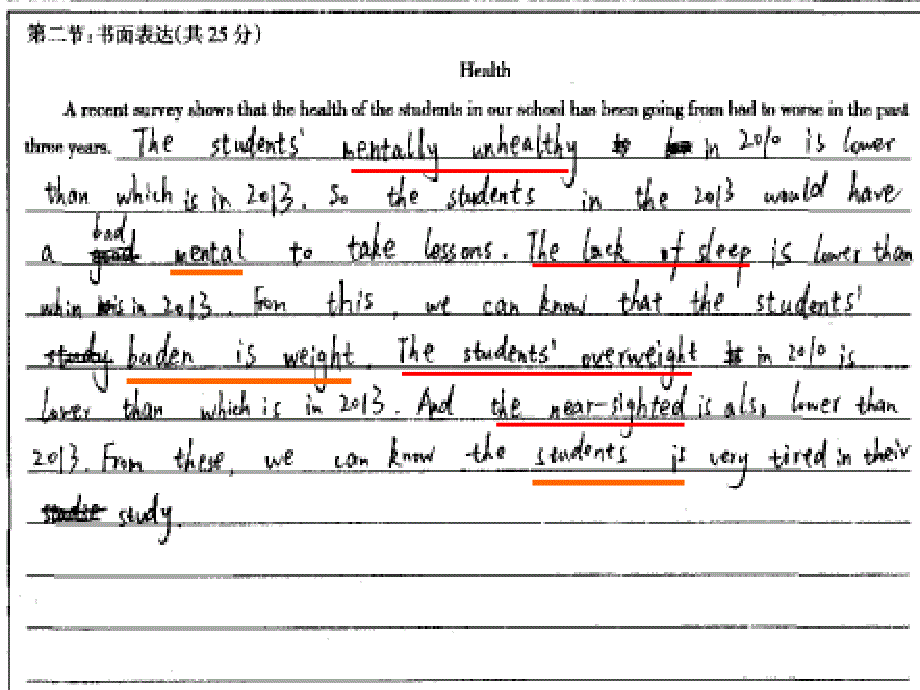 第二节:书面表达(共25分)
Health
A recent survey shows that the health of the students in our school has been going from bad to worse in the past
three years. The students' mentally unhealthy in 2010 is lower
than which is in 2013. So the students in the 2013 would have
a bad mental to take lessons. The lack of sleep is lower than
whin is in 2013. From this, we can know that the students'
buden is weight. The students' overweight in 2010 is
lower than which is in 2013. And the near-sighted is also lower than
2013. From these, we can know the students is very tired in their
study.